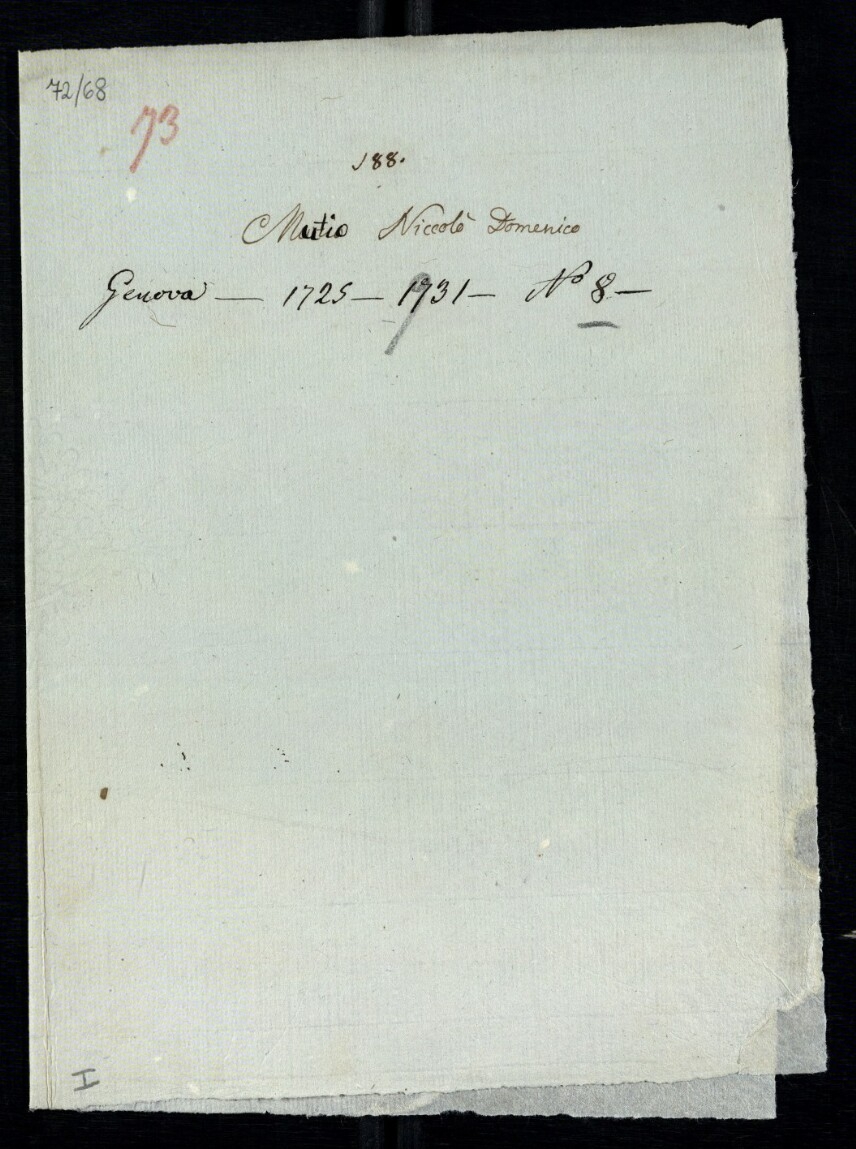 72/68
73
188.
Mutio Niccolò Domenico
Genova — 1725 — 1731 — Nº 8 —
I